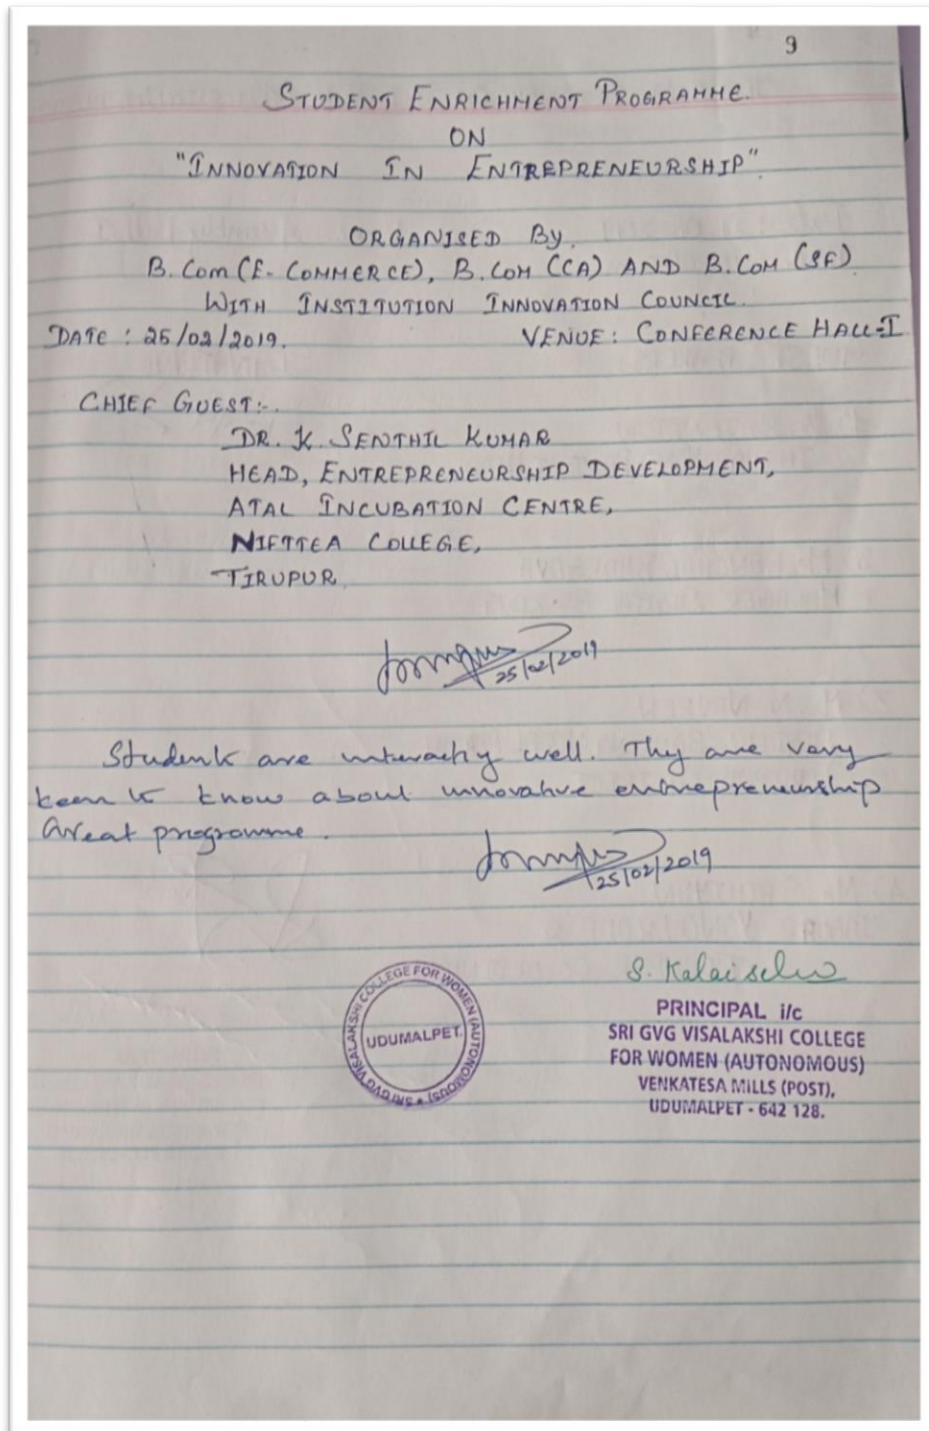 9
STUDENT ENRICHMENT PROGRAMME.
ON
"INNOVATION IN ENTREPRENEURSHIP".
ORGANISED By.
B.Com (E-COMMERCE), B.COM (CA) AND B.COM (SF)
WITH INSTITUTION INNOVATION COUNCIL.
DATE : 25/02/2019. VENUE: CONFERENCE HALL-I
CHIEF GUEST:-.
DR. K. SENTHIL KUMAR
HEAD, ENTREPRENEURSHIP DEVELOPMENT,
ATAL INCUBATION CENTRE,
NIFTTEA COLLEGE,
TIRUPUR.
25/02/2019
Students are interacting well. They are very
keen to know about innovative entrepreneurship
Great programme.
25/02/2019
S. Kalaiselvi
PRINCIPAL i/c
SRI GVG VISALAKSHI COLLEGE
FOR WOMEN (AUTONOMOUS)
VENKATESA MILLS (POST),
UDUMALPET - 642 128.
SRI GVG VISALAKSHI COLLEGE FOR WOMEN (AUTONOMOUS) *
UDUMALPET.